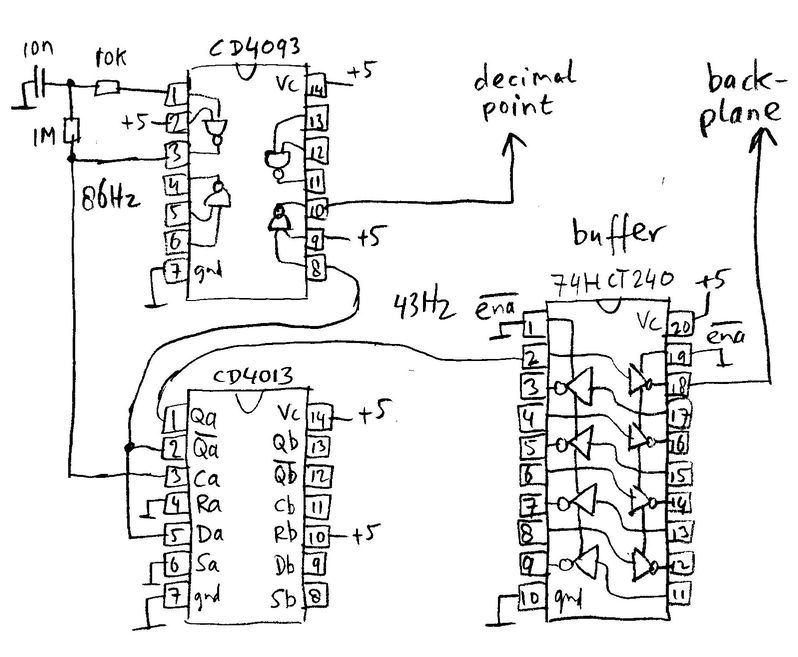 10n
10K
1M
86Hz
CD4093
1
+5 2
3
4
5
6
7 gnd
Vc 14 +5
13
12
11
10
9 +5
8
decimal
point
back-
plane
buffer
74HCT240
43Hz
ena
1
2
3
4
5
6
7
8
9
10 gnd
+5
Vc 20
ena
19
18
17
16
15
14
13
12
11
CD4013
1 Qa
2 Qa
3 Ca
4 Ra
5 Da
6 Sa
7 gnd
Vc 14 +5
Qb 13
Qb 12
Cb 11
Rb 10 +5
Db 9
Sb 8